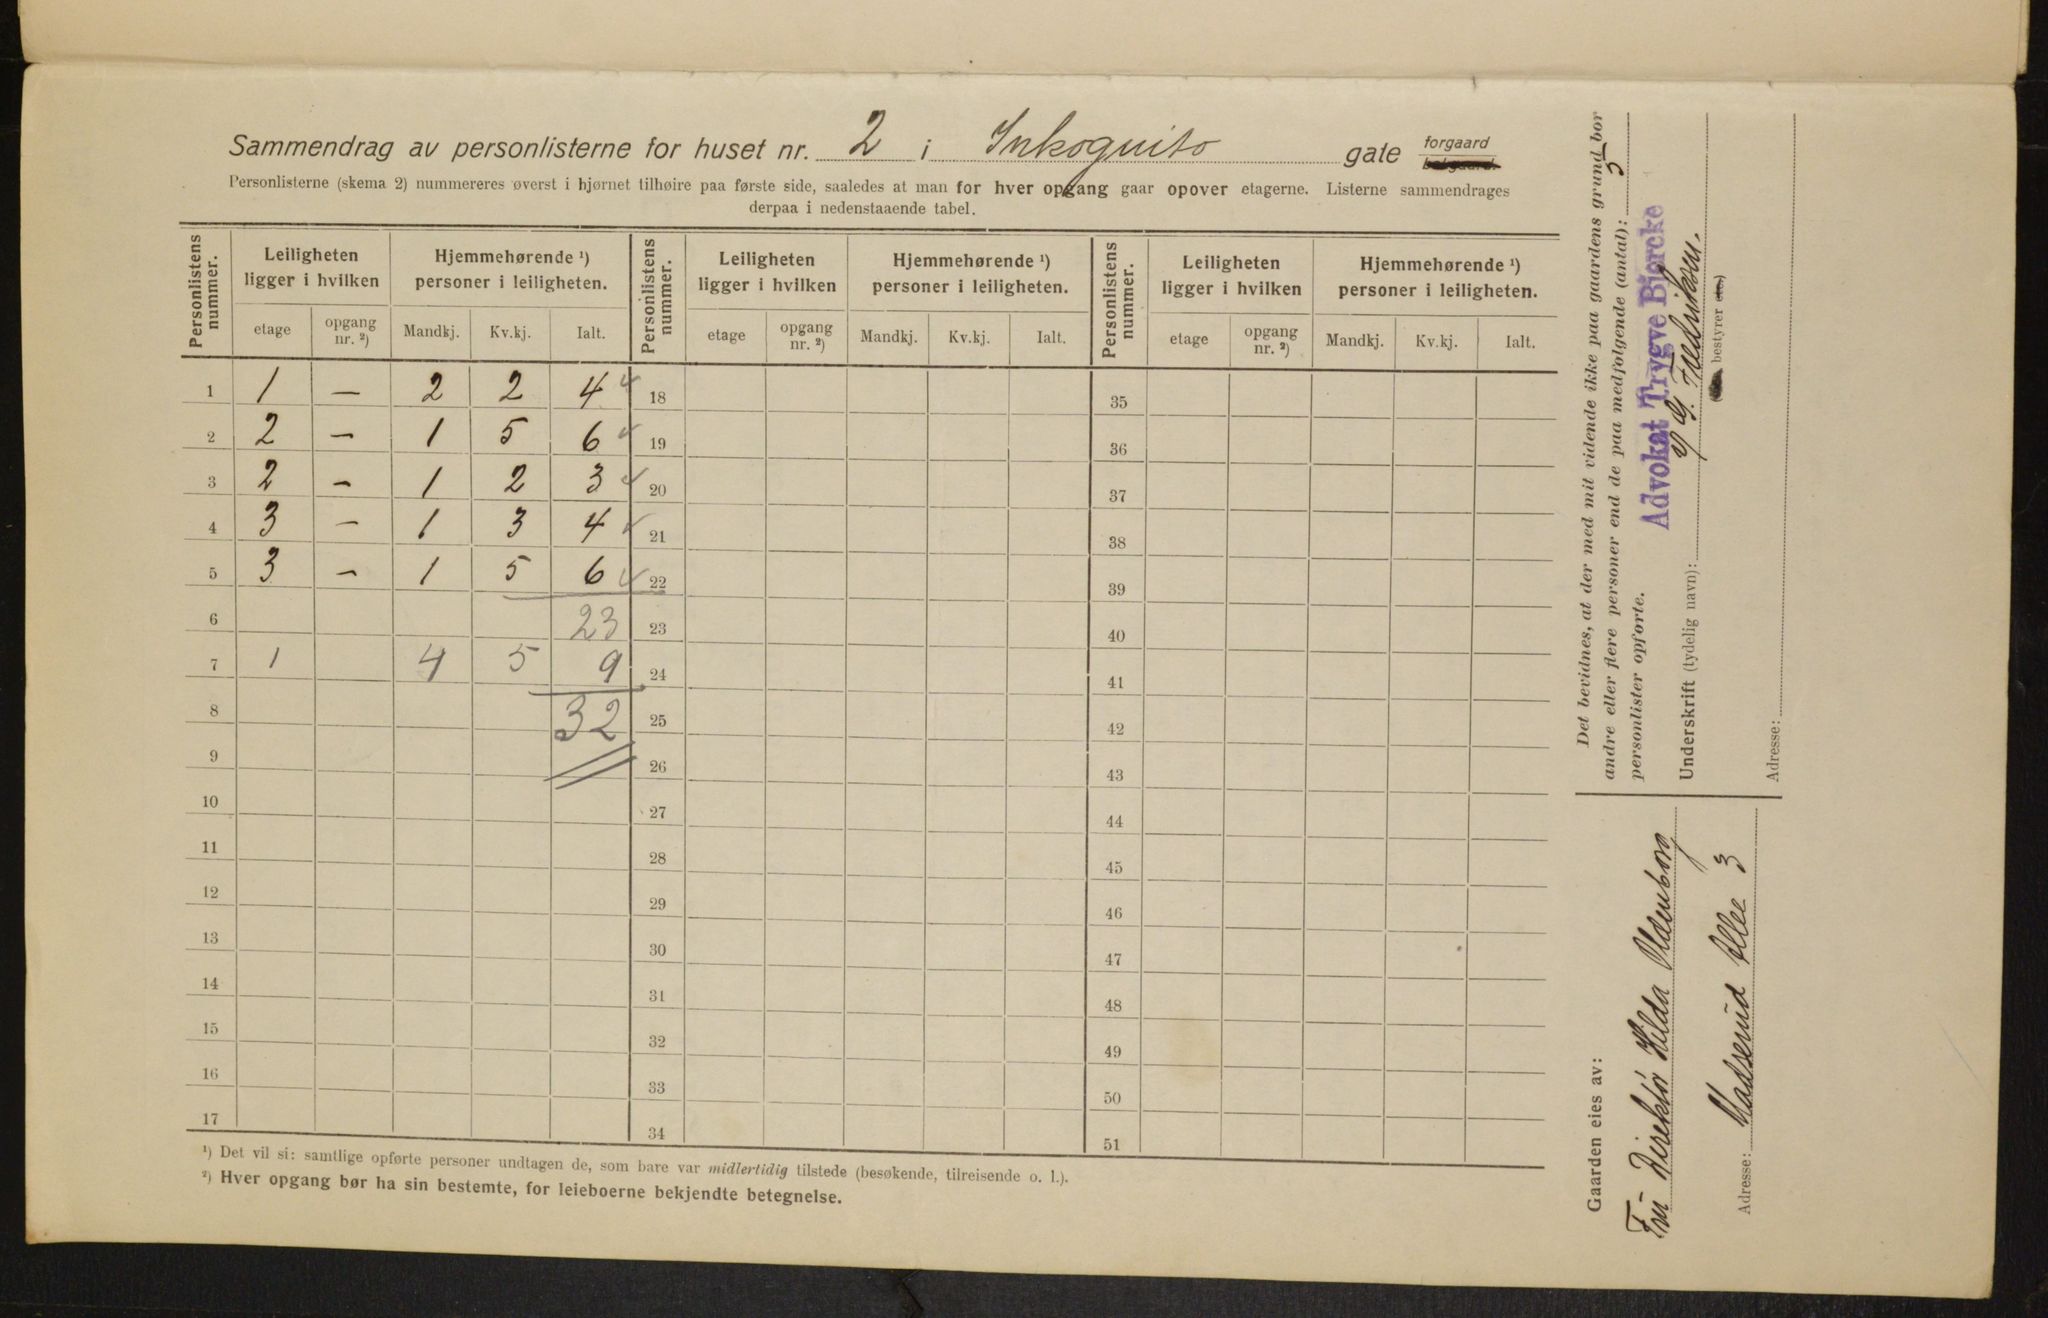 Sammendrag av personlisterne for huset nr. 2 i Inkognito gate forgaard
Personlisterne (skema 2) nummereres øverst i hjørnet tilhøire paa første side, saaledes at man for hver opgang gaar opover etagerne. Listerne sammendrages
derpaa i nedenstaaende tabel.
Personlistens nummer. Leiligheten ligger i hvilken Hjemmehørende ¹) personer i leiligheten. Personlistens nummer. Leiligheten ligger i hvilken Hjemmehørende ¹) personer i leiligheten. Personlistens nummer. Leiligheten ligger i hvilken Hjemmehørende ¹) personer i leiligheten.
etage opgang nr. ²) Mandkj. Kv.kj. Ialt. etage opgang nr. ²) Mandkj. Kv.kj. Ialt. etage opgang nr. ²) Mandkj. Kv.kj. Ialt.
1 1 – 2 2 4 ✓ 18 35
2 2 – 1 5 6 ✓ 19 36
3 2 – 1 2 3 ✓ 20 37
4 3 – 1 3 4 ✓ 21 38
5 3 – 1 5 6 ✓ 22 39
6 23 23 40
7 1 4 5 9 24 41
8 32 25 42
9 26 43
10 27 44
11 28 45
12 29 46
13 30 47
14 31 48
15 32 49
16 33 50
17 34 51
¹) Det vil si: samtlige opførte personer undtagen de, som bare var midlertidig tilstede (besøkende, tilreisende o. l.).
²) Hver opgang bør ha sin bestemte, for leieboerne bekjendte betegnelse.
Det bevidnes, at der med mit vidende ikke paa gaardens grund bor
andre eller flere personer end de paa medfølgende (antal): 5
personlister opførte.
Advokat Trygve Bjørcke
Underskrift (tydelig navn): G. Fredriksen.
bestyrer etc)
Adresse:
Gaarden eies av:
Fru Direktør Hilda Oldenborg
Adresse: Madserud Alle 3